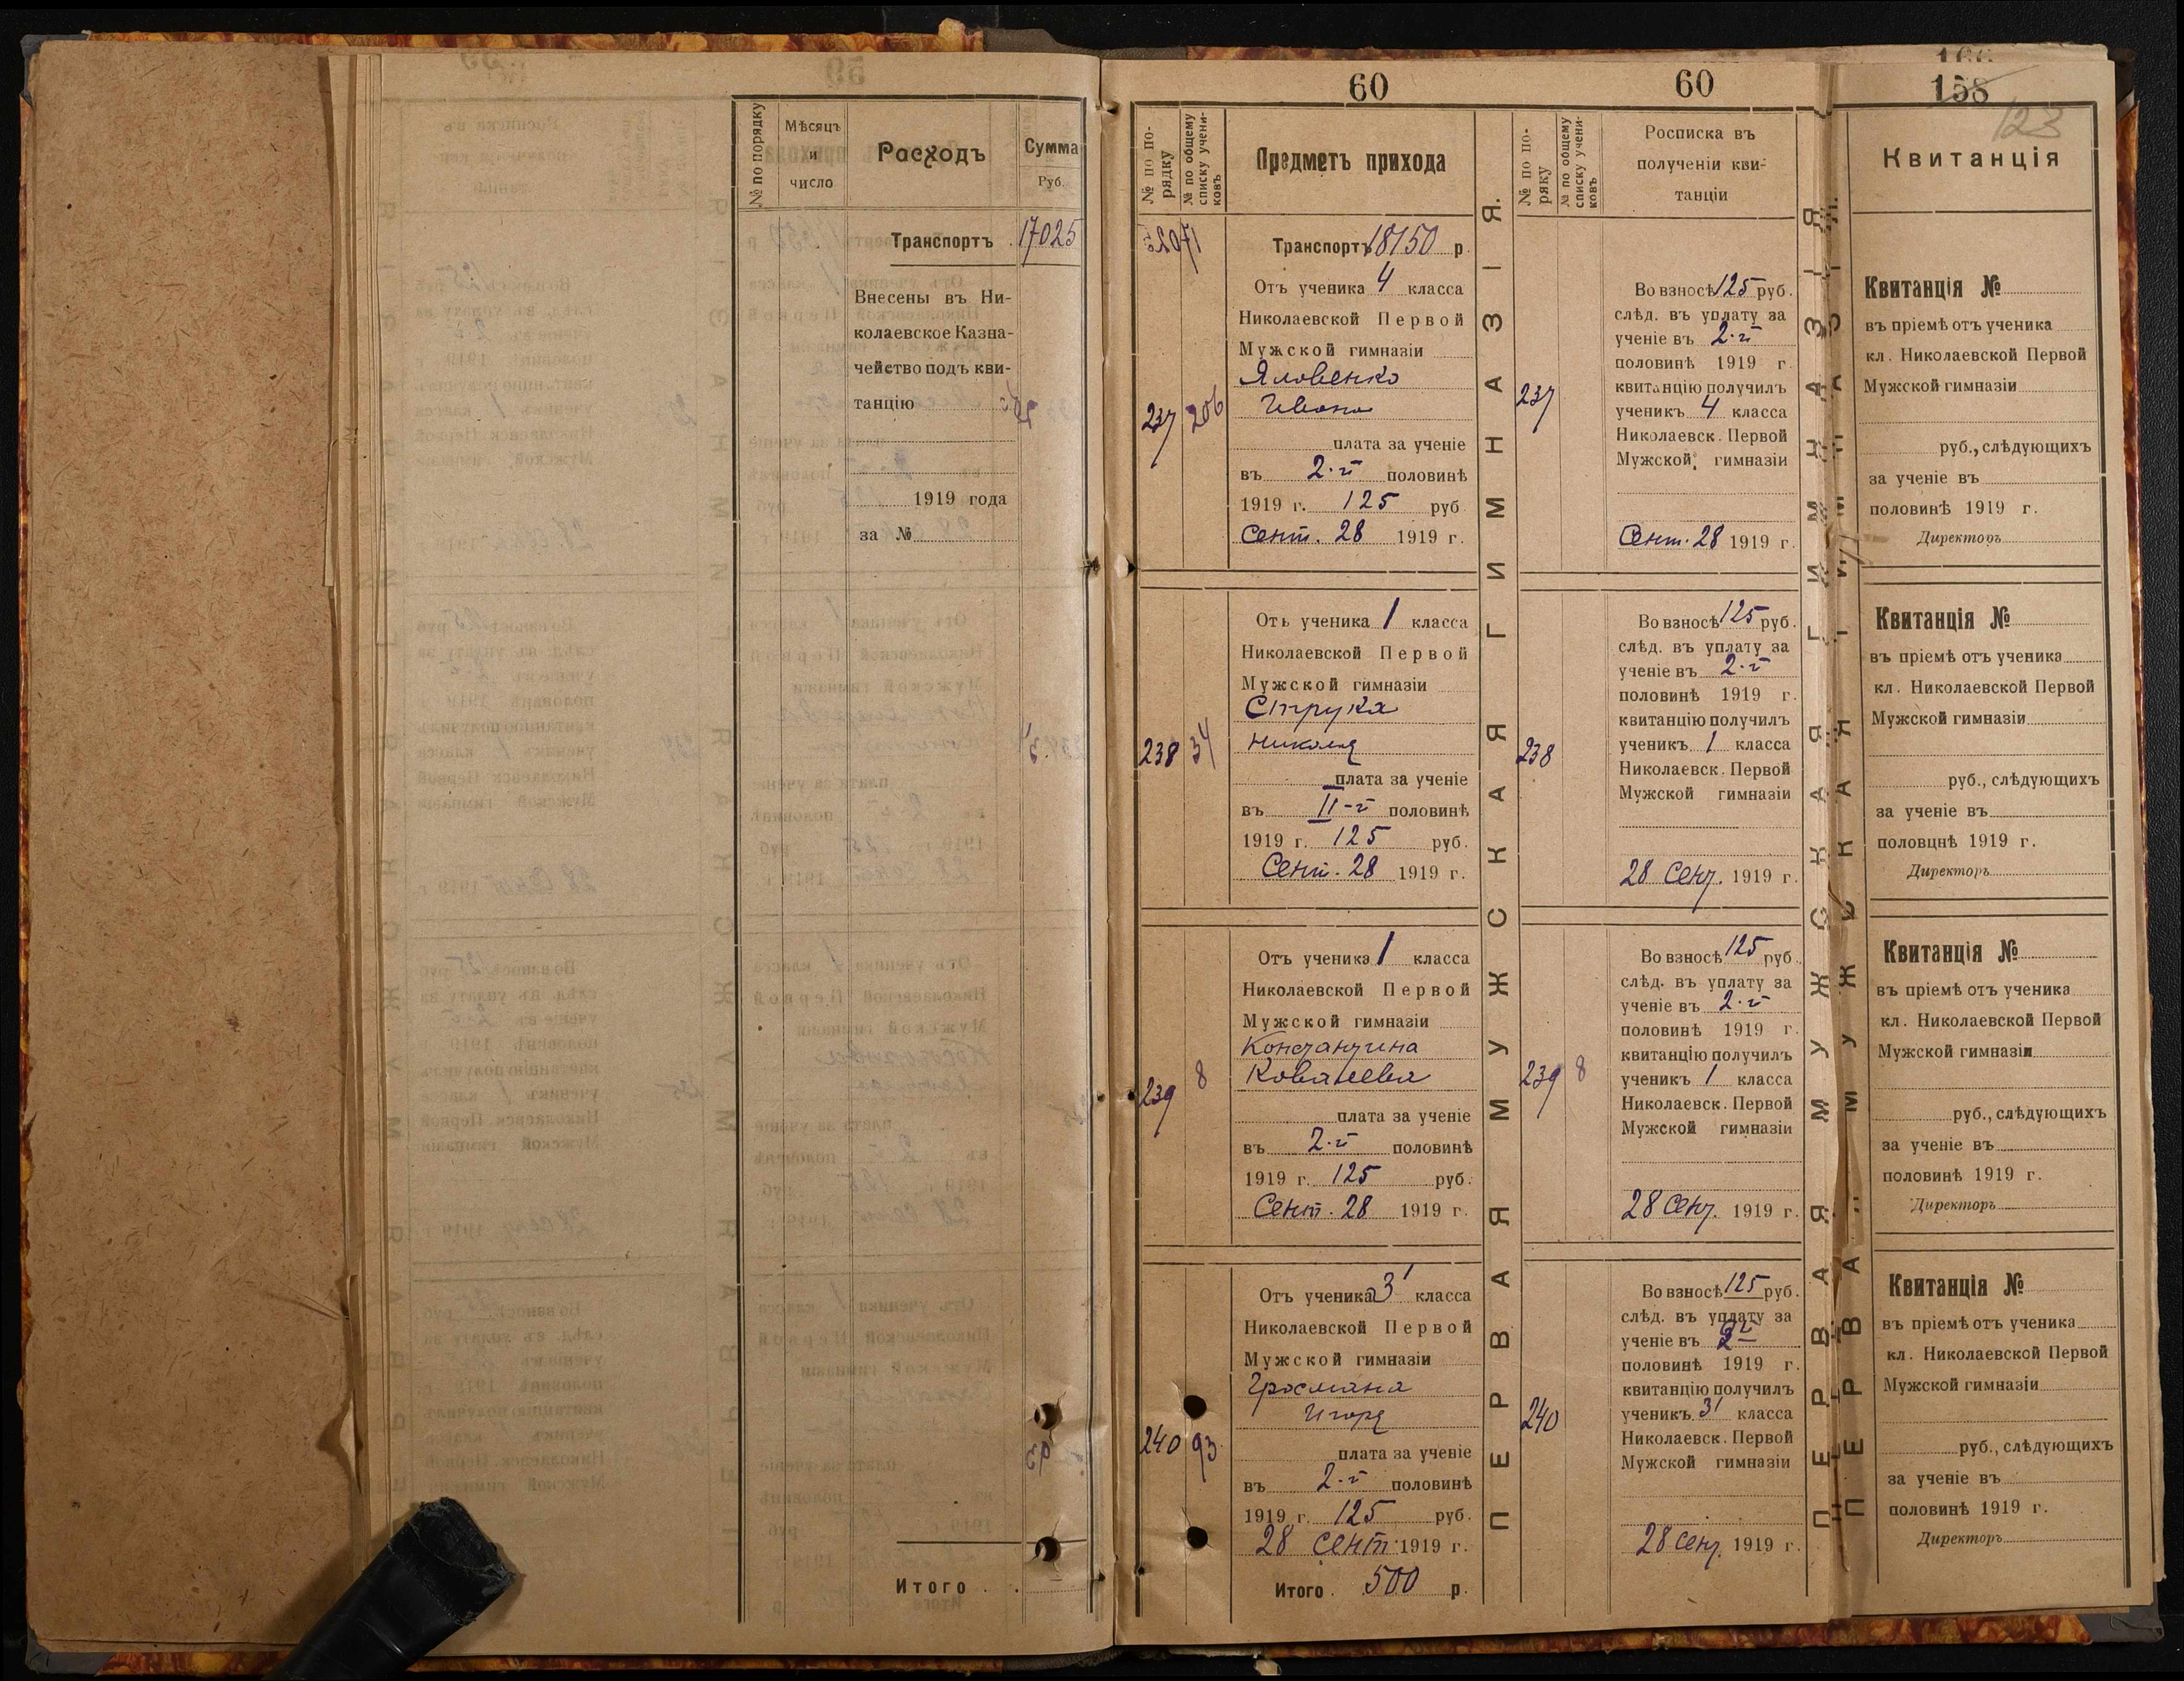 № по порядку
Мѣсяцъ
и
число
Расходъ
Сумма
Руб.
Транспортъ . 17025
Внесены въ Ни-
колаевское Казна-
чейство подъ кви-
танцію
1919 года
за №
Итого . .
60
№ по по-
рядку
№ по общему
списку учени-
ковъ
Предметъ прихода
Транспортъ 18150 р
237
206
Отъ ученика 4 класса
Николаевской Первой
Мужской гимназіи
Яловенко
Ивана
плата за ученіе
въ 2-й половинѣ
1919 г. 125 руб
Сент. 28 1919 г.
238
34
Отъ ученика 1 класса
Николаевской Первой
Мужской гимназіи
Струка
Николая
плата за ученіе
въ II-й половинѣ
1919 г. 125 руб.
Сент. 28 1919 г.
239
8
Отъ ученика 1 класса
Николаевской Первой
Мужской гимназіи
Константина
Ковалева
плата за ученіе
въ 2-й половинѣ
1919 г. 125 руб.
Сент. 28 1919 г.
240
93
Отъ ученика 3 класса
Николаевской Первой
Мужской гимназіи
Гросмана
Игоря
плата за ученіе
въ 2-й половинѣ
1919 г. 125 руб.
28 Сент. 1919 г.
Итого . 500 р.
ПЕРВАЯ МУЖСКАЯ ГИМНАЗІЯ.
60
№ по по-
ряку
№ по общему
списку учени-
ковъ
Росписка въ
полученіи кви-
танціи
237
Во взносѣ 125 руб.
слѣд. въ уплату за
ученіе въ 2-й
половинѣ 1919 г.
квитанцію получилъ
ученикъ 4 класса
Николаевск. Первой
Мужской гимназіи
Сент. 28 1919 г.
238
Во взносѣ 125 руб.
слѣд. въ уплату за
ученіе въ 2-й
половинѣ 1919 г.
квитанцію получилъ
ученикъ 1 класса
Николаевск. Первой
Мужской гимназіи
28 Сент. 1919 г.
239
8
Во взносѣ 125 руб.
слѣд. въ уплату за
ученіе въ 2-й
половинѣ 1919 г.
квитанцію получилъ
ученикъ 1 класса
Николаевск. Первой
Мужской гимназіи
28 Сент. 1919 г.
240
Во взносѣ 125 руб.
слѣд. въ уплату за
ученіе въ 2-й
половинѣ 1919 г.
квитанцію получилъ
ученикъ 3 класса
Николаевск. Первой
Мужской гимназіи
28 Сент. 1919 г.
ПЕРВАЯ МУЖСКАЯ ГИМНАЗІЯ.
166
158
123
Квитанція
Квитанція №
въ пріемѣ отъ ученика
кл. Николаевской Первой
Мужской гимназіи
руб., слѣдующихъ
за ученіе въ
половинѣ 1919 г.
Директоръ
Квитанція №
въ пріемѣ отъ ученика
кл. Николаевской Первой
Мужской гимназіи
руб., слѣдующихъ
за ученіе въ
половцнѣ 1919 г.
Директоръ
Квитанція №
въ пріемѣ отъ ученика
кл. Николаевской Первой
Мужской гимназіи
руб., слѣдующихъ
за ученіе въ
половинѣ 1919 г.
Директоръ
Квитанція №
въ пріемѣ отъ ученика
кл. Николаевской Первой
Мужской гимназіи
руб., слѣдующихъ
за ученіе въ
половинѣ 1919 г.
Директоръ